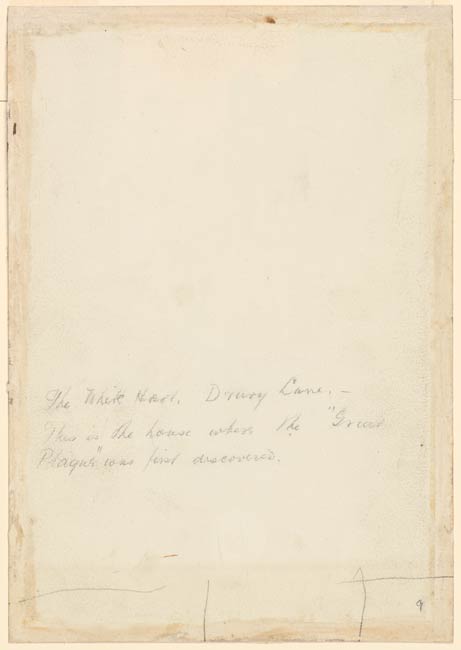 The White Hart. Drury Lane. —
This is the house where the "Great
Plague" was first discovered.
9